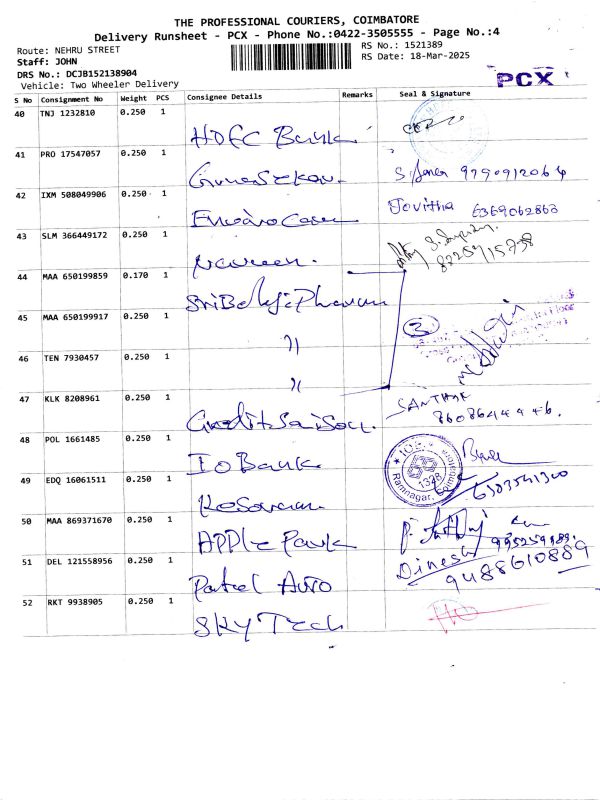 THE PROFESSIONAL COURIERS, COIMBATORE
Delivery Runsheet - PCX - Phone No.:0422-3505555 - Page No.:4
Route: NEHRU STREET
RS No.: 1521389
Staff: JOHN
RS Date: 18-Mar-2025
DRS No.: DCJB152138904
Vehicle: Two Wheeler Delivery
PCX
S No Consignment No Weight PCS Consignee Details Remarks Seal & Signature
40 TNJ 1232810 0.250 1
HDFC Bank
41 PRO 17547057 0.250 1
Gunasekar.
9790912064
42 IXM 508049906 0.250 1
Jovitha 6369062863
43 SLM 366449172 0.250 1
Naveen.
8225915738
44 MAA 650199859 0.170 1
Sri Balaji Pharma
45 MAA 650199917 0.250 1
3
"
46 TEN 7930457 0.250 1
"
47 KLK 8208961 0.250 1
SANTHA
Credit Saison.
48 POL 1661485 0.250 1
IO Bank
1328
Ramnagar, Coimbatore
49 EDQ 16061511 0.250 1
6303541300
Kesavan
50 MAA 869371670 0.250 1
APPle Park
51 DEL 121558956 0.250 1
Dinesh
9488610889
Patel AUTO
52 RKT 9938905 0.250 1
SKY Tech